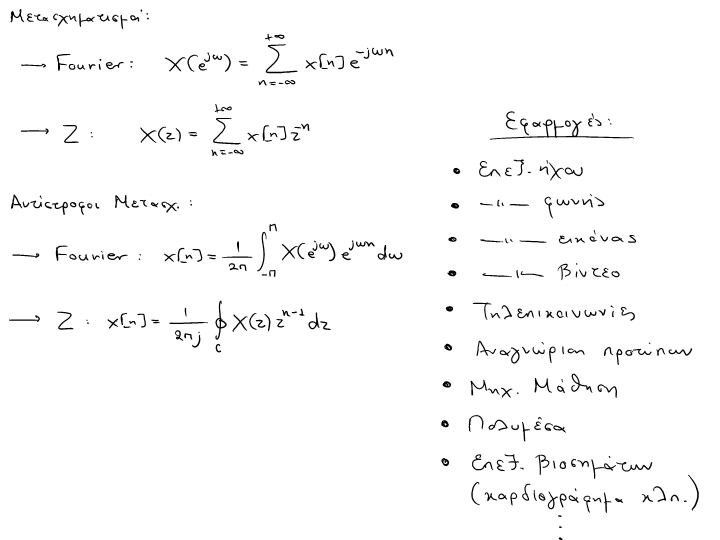 Μετασχηματισμοί:
→ Fourier: X(e^{jω}) = \sum_{n=-∞}^{+∞} x[n] e^{-jωn}
→ Z: X(z) = \sum_{n=-∞}^{+∞} x[n] z^{-n}
Αντίστροφοι Μετασχ.:
→ Fourier: x[n] = \frac{1}{2π} \int_{-π}^{π} X(e^{jω}) e^{jωn} dω
→ Z: x[n] = \frac{1}{2πj} \oint_{c} X(z) z^{n-1} dz
Εφαρμογές:
• Επεξ. ήχου
• —〃— φωνής
• —〃— εικόνας
• —〃— βίντεο
• Τηλεπικοινωνίες
• Αναγνώριση προτύπων
• Μηχ. Μάθηση
• Πολυμέσα
• Επεξ. βιοσημάτων
(καρδιογράφημα κλπ.)
⋮